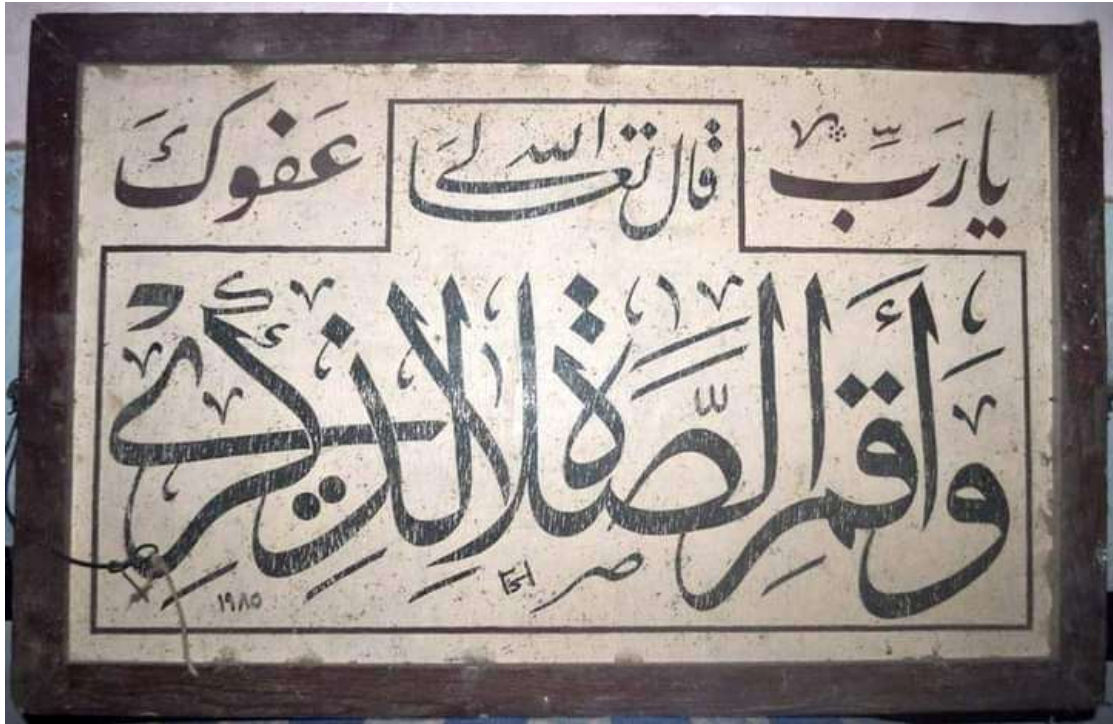 يا رَبِّ
قال الله تعالى
عَفوكَ
وَأَقِمِ الصَّلاةَ لِذِكْرِي
١٩٨٥